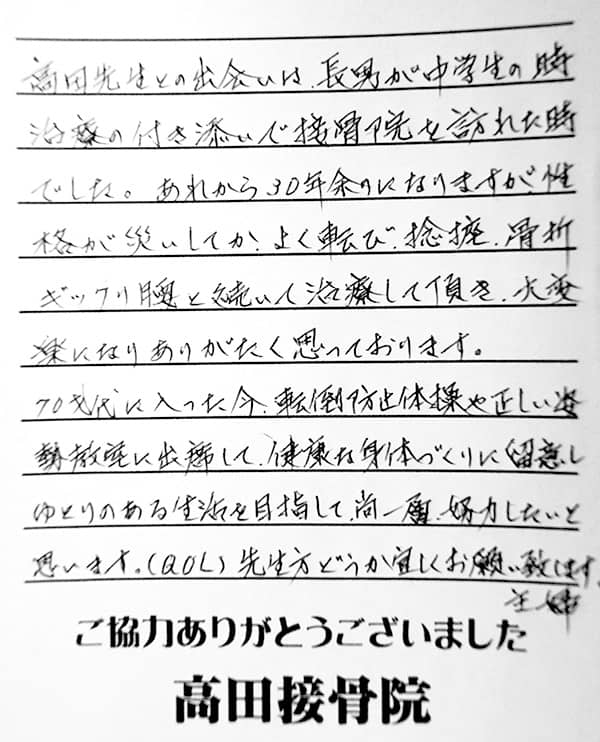 高田先生との出会いは、長男が中学生の時
治療の付き添いで接骨院を訪れた時
でした。あれから30年余りになりますが、性
格が災いしてか、よく転び、捻挫、骨折
ギックリ腰と続いて治療して頂き、大変
楽になりありがたく思っております。
70才代に入った今、転倒防止体操や正しい姿
勢教室に出席して、健康な身体づくりに留意し
ゆとりのある生活を目指して、尚一層、努力したいと
思います。(QOL)先生方どうか宜しくお願い致します。
主婦
ご協力ありがとうございました
高田接骨院